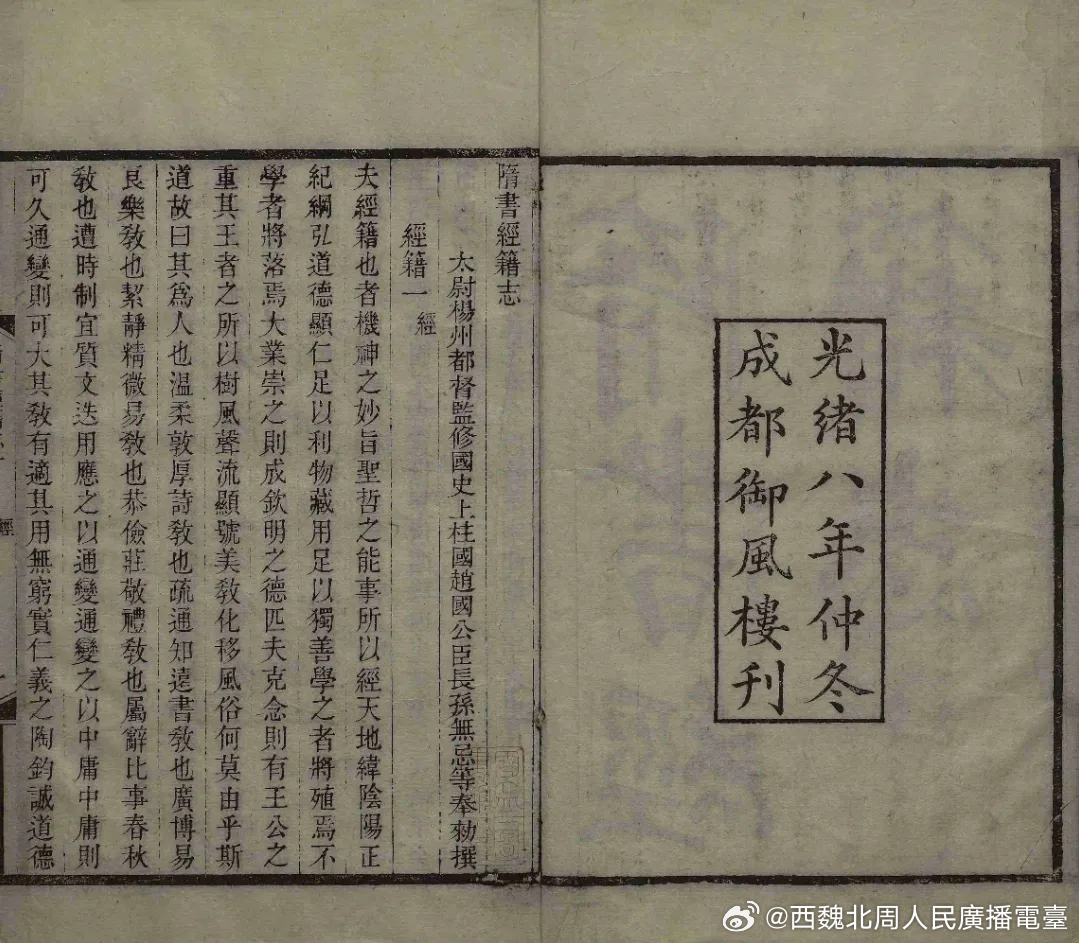 光緒八年仲冬
成都御風樓刊
隋書經籍志
太尉楊州都督監修國史上柱國趙國公臣長孫無忌等奉勑撰
經籍一 經
夫經籍也者機神之妙旨聖哲之能事所以經天地緯陰陽正
紀綱弘道德顯仁足以利物藏用足以獨善學之者將殖焉不
學者將落焉大業崇之則成欽明之德匹夫克念則有王公之
重其王者之所以樹風聲流顯號美敎化移風俗何莫由乎斯
道故曰其爲人也溫柔敦厚詩敎也疏通知遠書敎也廣博易
良樂敎也絜靜精微易敎也恭儉莊敬禮敎也屬辭比事春秋
敎也遭時制宜質文迭用應之以通變通變之以中庸中庸則
可久通變則可大其敎有適其用無窮實仁義之陶鈞誠道德
經
@西魏北周人民廣播電臺